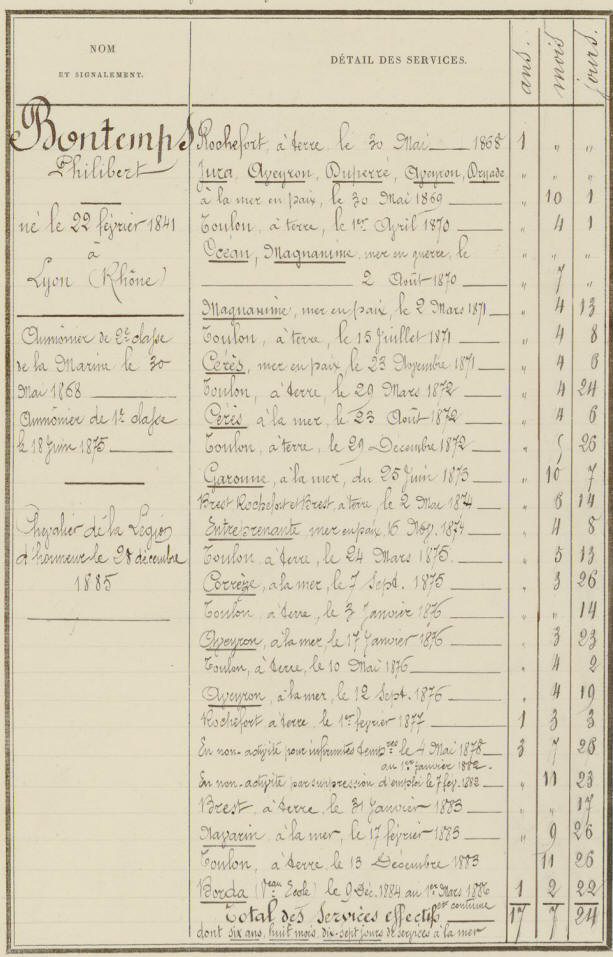 NOM
ET SIGNALEMENT.
DÉTAIL DES SERVICES.
ans.
mois
jours.
Bontemps
Philibert
né le 22 février 1841
à
Lyon (Rhône)
Aumônier de 2e classe
de la Marine le 30
Mai 1868
Aumônier de 1e classe
le 18 Juin 1875
Chevalier de la Légion
d'honneur le 28 décembre
1885
Rochefort, à terre, le 30 Mai 1868 1 " "
Jura, Aveyron, Duperré, Aveyron, Dryade, " " "
à la mer en paix, le 30 Mai 1869 " 10 1
Toulon, à terre, le 1er April 1870 " 4 1
Océan, Magnanime, mer en guerre, le " " "
2 Août 1870 " 7 "
Magnanime, mer en paix, le 2 Mars 1871 " 4 13
Toulon, à terre, le 15 Juillet 1871 " 4 8
Cérès, mer en paix le 23 Novembre 1871 " 4 6
Toulon, à terre, le 29 Mars 1872 " 4 24
Cérès à la mer, le 23 Août 1872 " 4 6
Toulon, à terre, le 29 Décembre 1872 " 5 26
Garonne, à la mer, du 25 Juin 1873 " 10 7
Brest Rochefort et Brest, à terre, le 2 Mai 1874 " 6 14
Entreprenante mer en paix, 16 Nov. 1874 " 4 8
Toulon, à terre, le 24 Mars 1875. " 5 13
Corrèze, à la mer, le 7 Sept. 1875 " 3 26
Toulon, à terre, le 3 Janvier 1876 " " 14
Aveyron, à la mer, le 17 Janvier 1876 " 3 23
Toulon, à terre, le 10 Mai 1876 " 4 2
Aveyron, à la mer, le 12 Sept. 1876 " 4 19
Rochefort à terre, le 1er février 1877 1 3 3
En non-activité pour infirmités tempres le 4 Mai 1878 3 7 26
au 1er janvier 1882.
En non-activité par suppression d'emploi le 7 fév. 1882 " 11 23
Brest, à terre, le 31 Janvier 1883 " " 17
Navarin, à la mer, le 17 février 1883 " 9 26
Toulon, à terre le 13 Décembre 1883 11 26
Borda (Veau Ecole) le 9 Déc. 1884 au 1er Mars 1886 1 2 22
et continue
Total des Services effectifs 17 7 24
dont six ans, huit mois, dix-sept jours de services à la mer